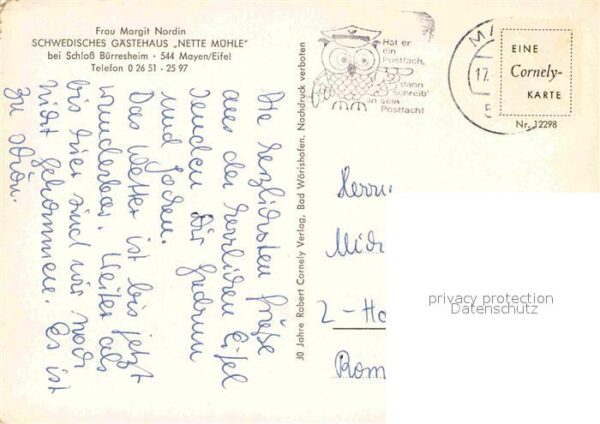 Frau Margit Nordin
SCHWEDISCHES GÄSTEHAUS „NETTE MÜHLE"
bei Schloß Bürresheim · 544 Mayen/Eifel
Telefon 0 26 51 - 25 97
Die herzlichsten Grüße
aus der herrlichen Eifel
senden Dir Gudrun
und Jochen.
Das Wetter ist bis jetzt
wunderbar. Weiter als
bis hier sind wir noch
nicht gekommen. Es ist
zu schön.
30 Jahre Robert Cornely Verlag, Bad Wörishofen. Nachdruck verboten
Hat er
ein
Postfach,
dann
schreib'
an sein
Postfach!
17.
5
EINE
Cornely-
KARTE
Nr. 12298
Herrn
2 - Ha
Rom
privacy protection
Datenschutz